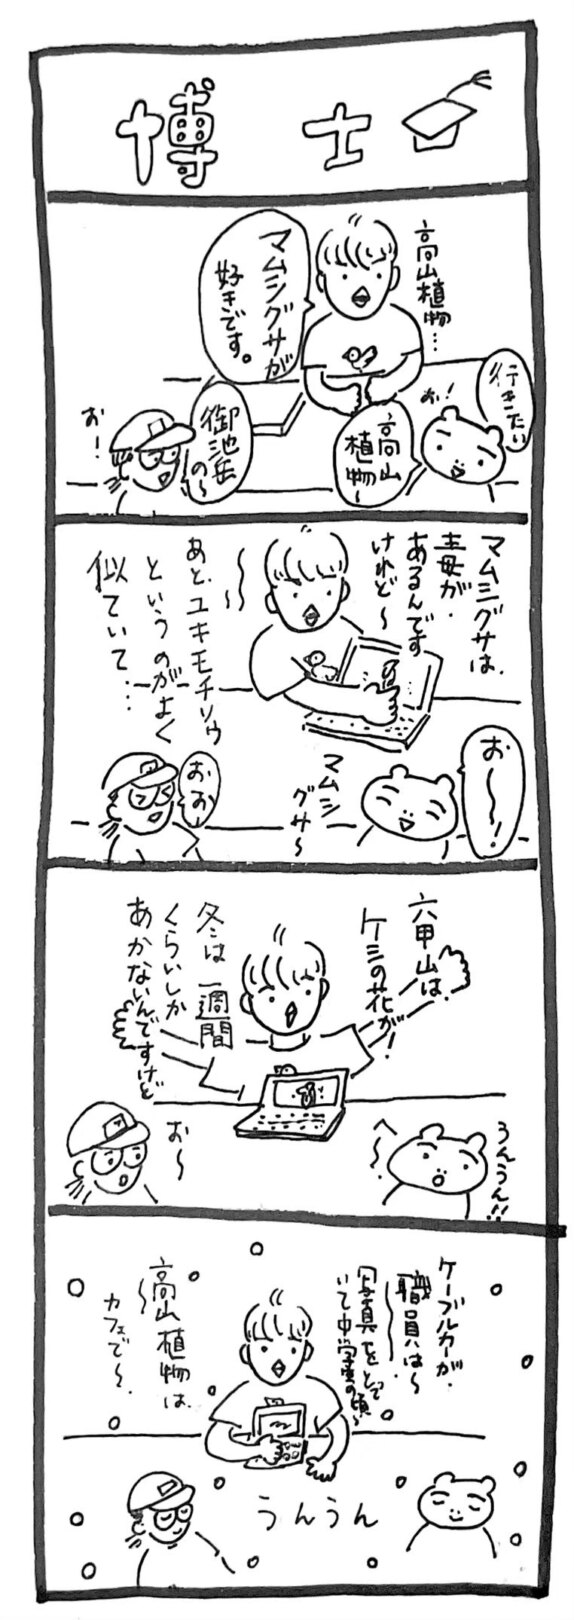 博士
高山植物…
マムシグサが
好きです。
行きたい
お!
高山
植物〜
御池岳
の〜
お!
マムシグサは
毒が
あるんです
けれど〜
あと、ユキモチソウ
というのがよく
似ていて…
お〜〜!
マムシ
グサ〜
おお
六甲山は、
ケシの花が!
冬は一週間
くらいしか
あかないんですけど
うんうん!!
へ〜
お〜
ケーブルカーが、
職員は〜
写真をとって
いて中学生の頃〜
高山植物は
カフェで〜、
うんうん